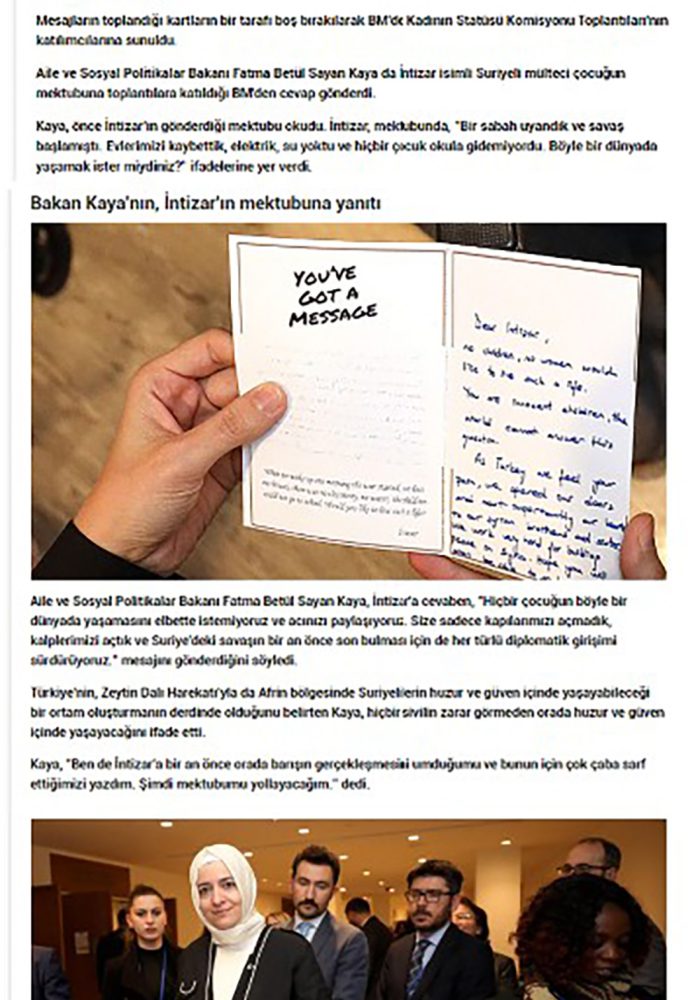 Mesajların toplandığı kartların bir tarafı boş bırakılarak BM'de Kadının Statüsü Komisyonu Toplantıları'nın
katılımcılarına sunuldu.
Aile ve Sosyal Politikalar Bakanı Fatma Betül Sayan Kaya da İntizar isimli Suriyeli mülteci çocuğun
mektubuna toplantılara katıldığı BM'den cevap gönderdi.
Kaya, önce İntizar'ın gönderdiği mektubu okudu. İntizar, mektubunda, "Bir sabah uyandık ve savaş
başlamıştı. Evlerimizi kaybettik, elektrik, su yoktu ve hiçbir çocuk okula gidemiyordu. Böyle bir dünyada
yaşamak ister miydiniz?" ifadelerine yer verdi.
Bakan Kaya'nın, İntizar'ın mektubuna yanıtı
YOU'VE
GOT A
MESSAGE
Dear İntizar,
no children, no women wouldn
like to live such a life.
You are innocent children, the
world cannot answer this
question.
As Turkey we feel your
pain, we opened our doors
and most importantly our hearts
to our syrian brothers and sisters
work very hard for building
peace in Syria, hope you will
Aile ve Sosyal Politikalar Bakanı Fatma Betül Sayan Kaya, İntizar'a cevaben, "Hiçbir çocuğun böyle bir
dünyada yaşamasını elbette istemiyoruz ve acınızı paylaşıyoruz. Size sadece kapılarımızı açmadık,
kalplerimizi açtık ve Suriye'deki savaşın bir an önce son bulması için de her türlü diplomatik girişimi
sürdürüyoruz." mesajını gönderdiğini söyledi.
Türkiye'nin, Zeytin Dalı Harekatı'yla da Afrin bölgesinde Suriyelilerin huzur ve güven içinde yaşayabileceği
bir ortam oluşturmanın derdinde olduğunu belirten Kaya, hiçbir sivilin zarar görmeden orada huzur ve güven
içinde yaşayacağını ifade etti.
Kaya, "Ben de İntizar'a bir an önce orada barışın gerçekleşmesini umduğumu ve bunun için çok çaba sarf
ettiğimizi yazdım. Şimdi mektubumu yollayacağım." dedi.